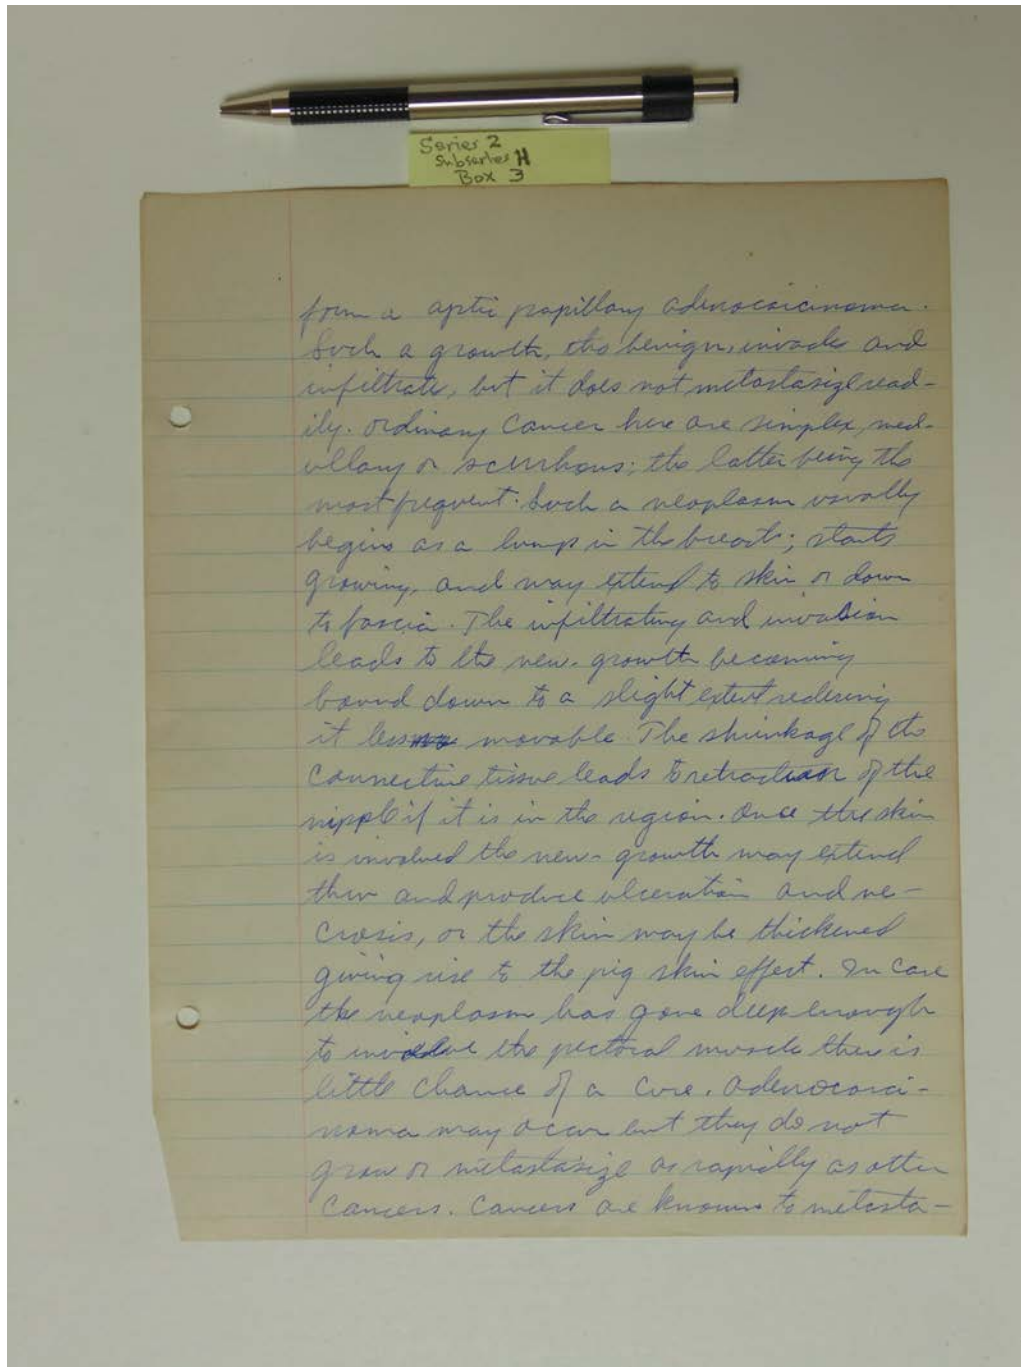 Series 2
Subseries H
Box 3
form a papillary adenocarcinoma.
Such a growth, tho benign, invade and
infiltrate, but it does not metastasize read-
ily. Ordinary Cancer here are simplex, med-
ullary or scirrhous; the latter being the
most frequent. Such a neoplasm usually
begins as a lump in the breast; starts
growing, and may extend to skin or down
to fascia. The infiltrating and invasion
leads to the new-growth becoming
bound down to a slight extent redering
it less movable. The shrinkage of the
Connective tissue leads to retraction of the
nipple if it is in the region. Once the skin
is involved the new-growth may extend
thru and produce ulceration and ne-
crosis, or the skin may be thickened
giving rise to the pig skin effect. In case
the neoplasm has gone deep enough
to involve the pectoral muscle there is
little chance of a cure. Adenocarci-
noma may occur but they do not
grow or metastasize as rapidly as other
Cancers. Cancers are known to metasta-